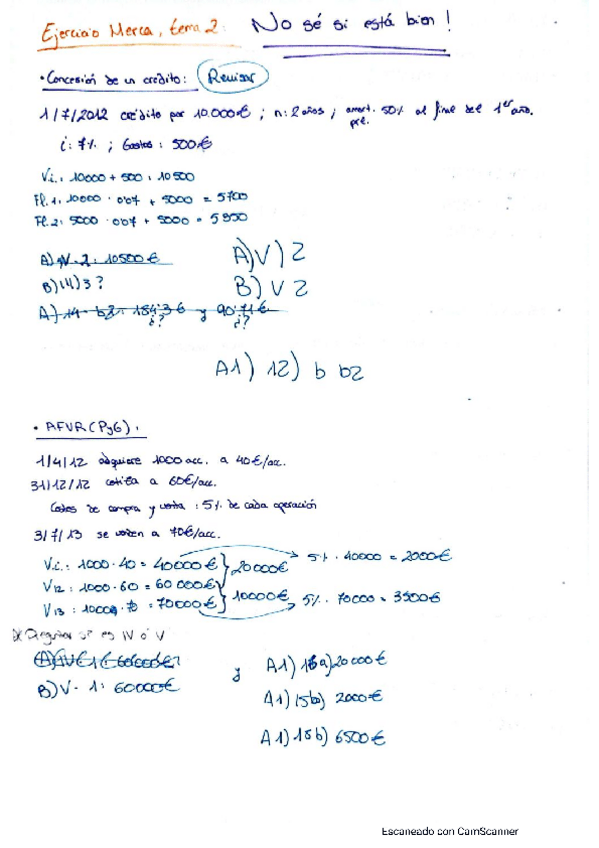 Ejercicio Merca, tema 2: No sé si está bien!
• Concesión de un crédito: Revisar
1/7/2012 crédito por 10.000€ ; n: 2 años ; amort. 50% al final del 1er año.
i: 7% ; Gastos: 500€
V.i.: 10000 + 500 : 10500
Fl. 1: 10000 · 0'07 + 5000 = 5700
Fl. 2: 5000 · 0'07 + 5000 =
A) 2: 10500€
B) 3?
A) 14 - b2: 184'36 y 90'71€
¿? ¿?
A) V) 2
B) V 2
A1) 12) b b2
• AFVR (PyG).
1/4/12 adquiere 1000 acc. a 40€/acc.
31/12/12 cotiza a 60€/acc.
Costes de compra y venta : 5% de cada operación
3/7/13 se venden a 70€/acc.
V.i.: 1000·40 = 40000€ } 20000€ 5% · 40000 = 2000€
V12 : 1000·60 = 60000€
V13 : 1000·70 = 70000€ } 10000€ 5% · 70000 = 3500€
si es IV o V
B) V - 1: 60000€
y A1) a) 20000€
A1) 15b) 2000€
A1) b) 6500€
Escaneado con CamScanner